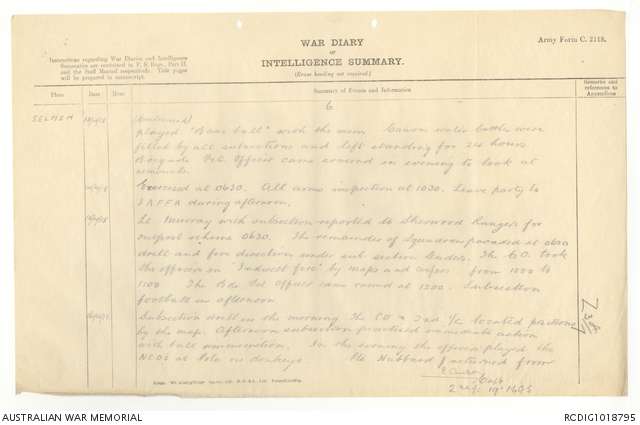 WAR DIARY
OF
INTELLIGENCE SUMMARY.
(Erase heading not required.)
Army Form C. 2118.
Instructions regarding War Diaries and Intelligence
Summaries are contained in F. S. Regs., Part II.
and the Staff Manual respectively. Title pages
will be prepared in manuscript.
Place Date Hour Summary of Events and Information Remarks and references to Appendices
6
SELMEH
played "Base ball" with the men. water bottles were
filled by all subsections and left standing for 24 hours.
Brigade Vet. Officer came around in evening to look at
animals.
Exercised at 0630. All arms inspection at 1030. Leave party to
JAFFA during afternoon.
Lt. Murray with subsection reported to Sherwood Rangers for
outpost scheme 0630. The remainder of Squadron paraded at 0630
drill and fire direction under sub section leaders. The C.O. took
the officers on "Indirect fire" by maps and from 1000 to
1100 The Bde Vet Officer came round at 1200. Subsection
football in afternoon
Subsection drill in the morning. The CO & 2nd I/C located positions
by the map. Afternoon subsection practised immediate action
with ball ammunition. In the evening the officers played the
NCOs at Polo on donkeys. Pte Hubbard returned from
AUSTRALIAN WAR MEMORIAL
RCDIG1018795